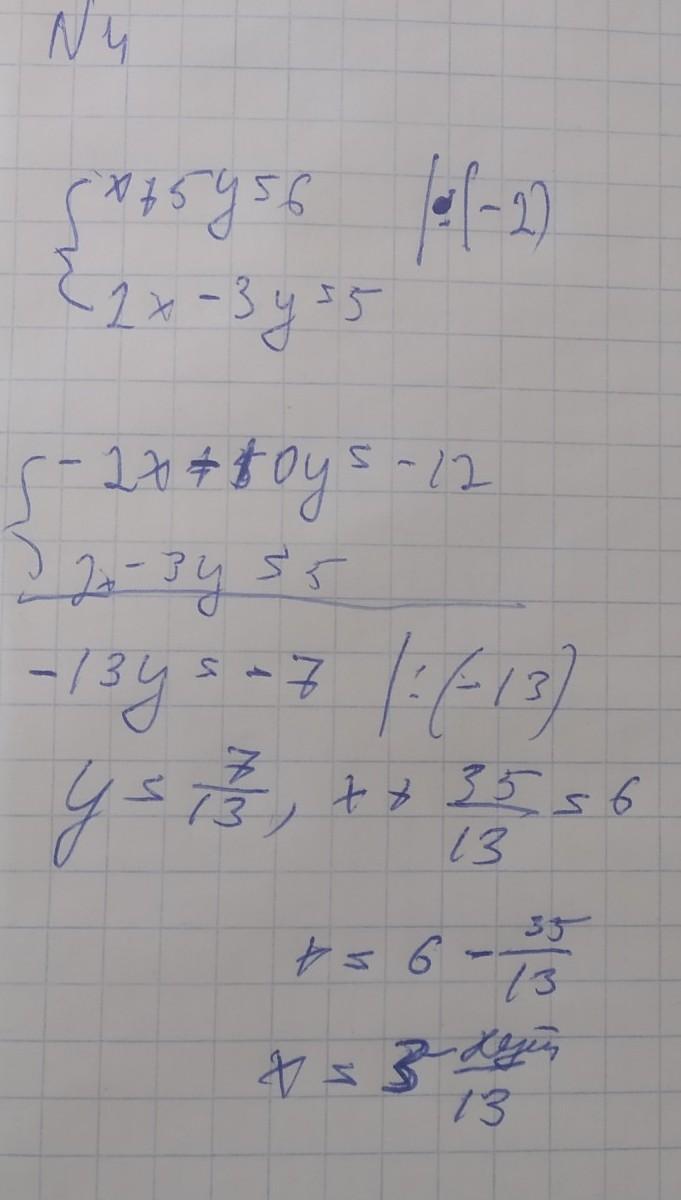 N 4
x+5y=6 |·(-2)
2x-3y=5
-2x-10y=-12
2x-3y=5
-13y=-7 |:(-13)
y=7/13, x+35/13=6
x=6-35/13
x=3 хуй/13